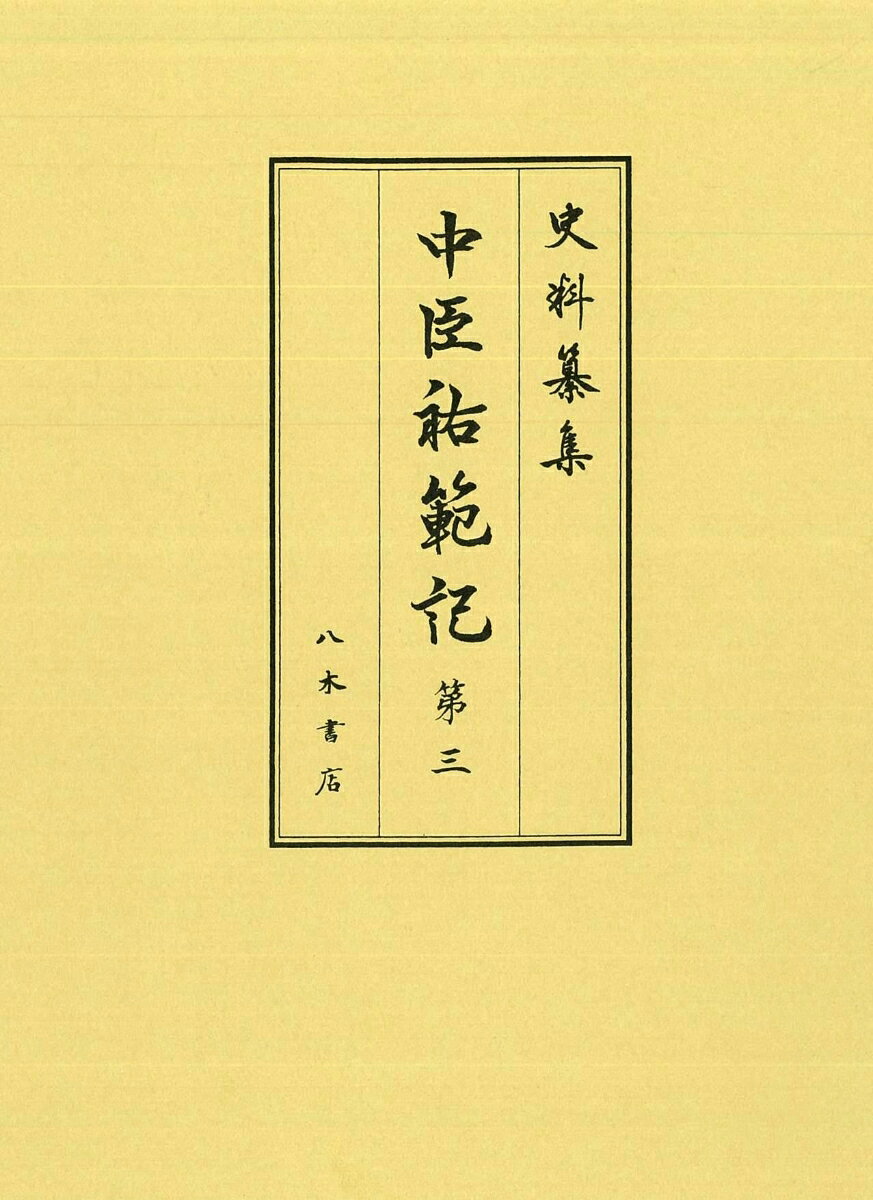 史料纂集
中臣祐範記 第三
八木書店